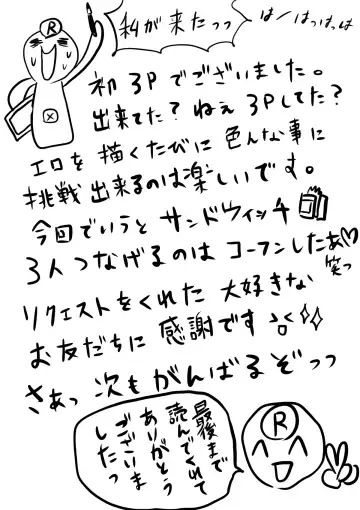 私が来たっっ
はーはっはっは
R
初3Pでございました。
出来てた？ねぇ3Pしてた？
エロを描くたびに色んな事に
挑戦出来るのは楽しいです。
今回でいうとサンドウィッチ
3人つなげるのはコーフンしたぁ♡
笑っ
リクエストをくれた大好きな
お友だちに感謝です
さあっ次もがんばるぞっっ
最後まで
読んでくれて
ありがとう
ございま
したっ
R